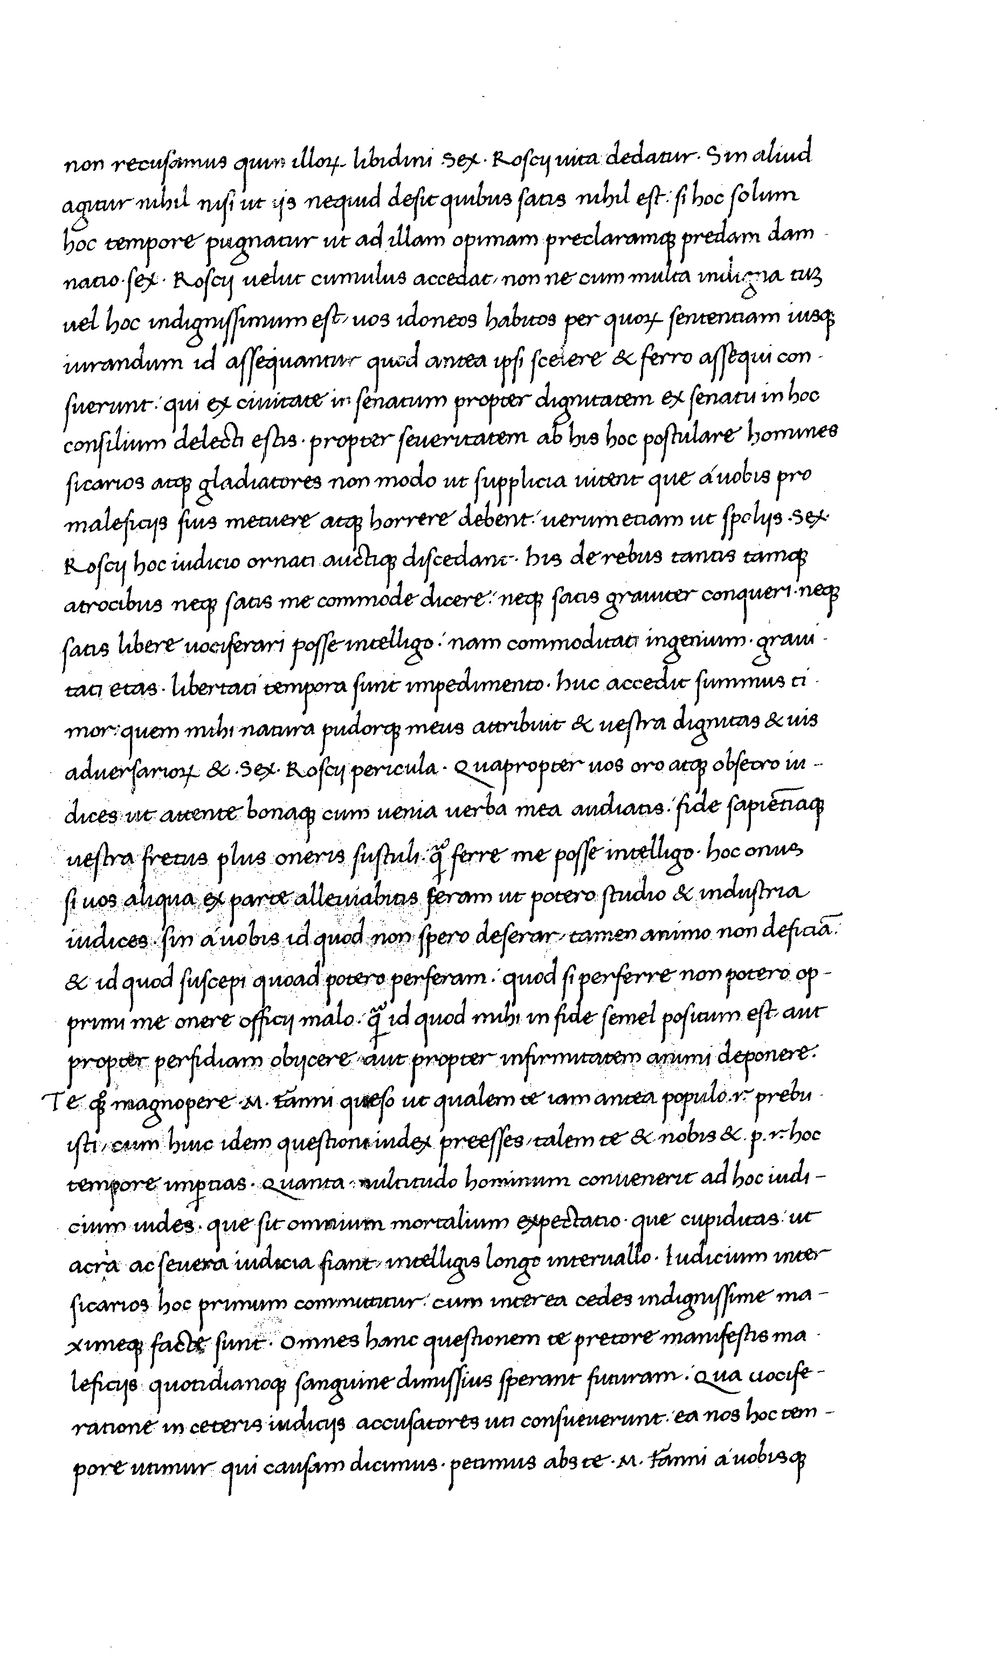 non recusamus quin illoꝝ libidini Sex· Roscij uita dedatur· Sin aliud
agitur nihil nisi ut ijs nequid desit quibus satis nihil est: si hoc solum
hoc tempore pugnatur ut ad illam opimam preclaramqꝫ predam dam-
natio·sex· Roscij uelut cumulus accedat, non ne cum multa indigna tuꝫ
uel hoc indignissimum est, uos idoneos habitos per quoꝝ sententiam iusqꝫ
iurandum id assequantur quod antea ipsi scelere & ferro assequi con-
suerunt: qui ex ciuitate in senatum propter dignitatem ex senatu in hoc
consilium delecti estis· propter seueritatem ab his hoc postulare homines
sicarios atqꝫ gladiatores non modo ut supplicia uitent que á uobis pro
maleficijs suis metuere atqꝫ horrere debent: uerum etiam ut spolijs ·Sex·
Roscij hoc iudicio ornati auctiqꝫ discedant· his de rebus tantis tamqꝫ
atrocibus neqꝫ satis me commode dicere: neqꝫ satis grauiter conqueri·neqꝫ
satis libere uociferari posse intelligo: nam commoditati ingenium· graui-
tati etas· libertati tempora sunt impedimento· huc accedit summus ti-
mor: quem mihi natura pudorqꝫ meus attribuit & uestra dignitas & uis
aduersarioꝝ & ·Sex· Roscij pericula· Quapropter uos oro atqꝫ obsecro iu-
dices ut attente bonaqꝫ cum uenia uerba mea audiatis: fide sapiētiaqꝫ
uestra fretus plus oneris sustuli: q̄ ferre me posse intelligo· hoc onus
si uos aliqua ex parte alleuiabitis feram ut potero studio & industria
iudices: sin á uobis id quod non spero deserar, tamen animo non deficiā:
& id quod suscepi quoad potero perferam: quod si perferre non potero op-
primi me onere officij malo: q̄ id quod mihi in fide semel positum est aut
propter perfidiam obijcere aut propter infirmitatem animi deponere:
Te qꝫ magnopere ·M· Fānni queso ut qualem te iam antea populo·r· prebu-
isti, cum huic idem questioni iudex preesses, talem te & nobis & ·p·r· hoc
tempore imꝑtias· Quanta multitudo hominum conuenerit ad hoc iudi-
cium uides· que sit omnium mortalium expectatio· que cupiditas: ut
acria ac seuera iudicia fiant, intelligis longo interuallo· Iudicium inter
sicarios hoc primum committitur: cum interea cedes indignissime ma-
ximeqꝫ facte sunt· Omnes hanc questionem te pretore manifestis ma-
leficijs quotidianoqꝫ sanguine dimissius sperant futuram: Qua uocife-
ratione in ceteris iudicijs accusatores uti consueuerunt: ea nos hoc tem-
pore utimur qui causam dicimus· petimus abs te ·M· Fānni á uobisqꝫ